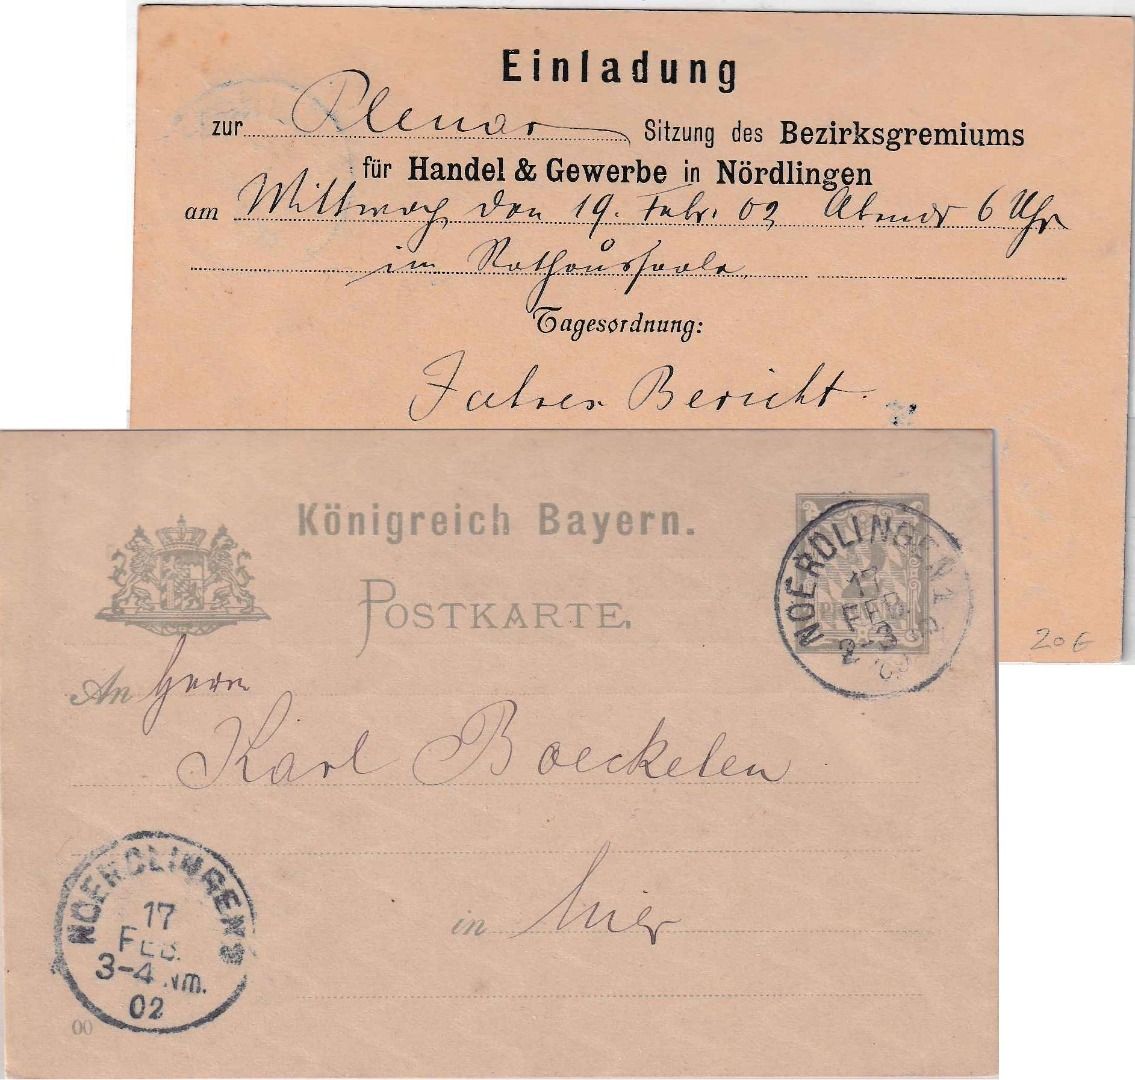 Einladung
zur Plenar Sitzung des Bezirksgremiums
für Handel & Gewerbe in Nördlingen
am Mittwoch den 19. Febr. 02 Abends 6 Uhr
im Rathaussaale
Tagesordnung:
Jahres Bericht.
20 €
Königreich Bayern.
POSTKARTE.
NOERDLINGEN
17
FEB.
2-3
An Herrn
Karl Boeckelen
in hier
NOERDLINGEN
17
FEB.
3-4 Nm.
02
00